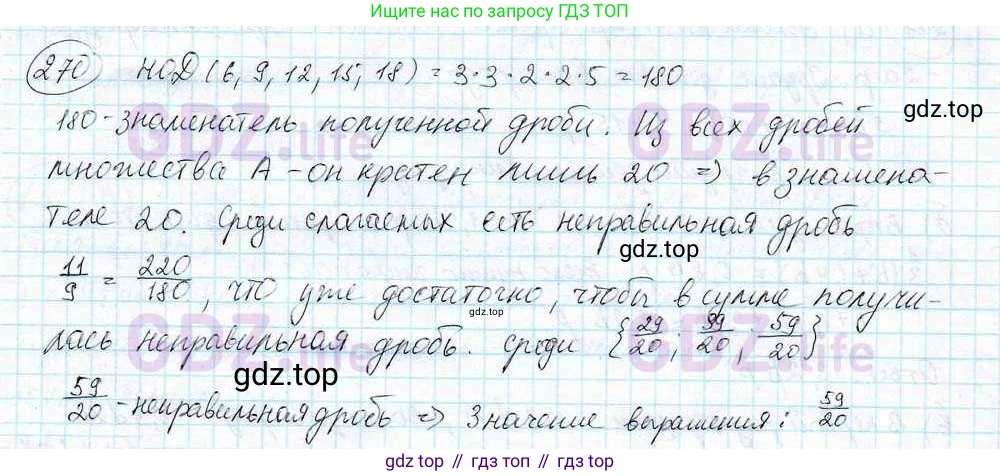 Ищите ответы по запросу ГДЗ ТОП
270 НОД (6, 9, 12, 15, 18) = 3 · 3 · 2 · 2 · 5 = 180
180 - знаменатель полученной дроби. Из всех дробей
множества А - он кратен лишь 20 => в знамена-
теле 20. Среди слагаемых есть неправильная дробь
11/9 = 220/180, что уже достаточно, чтобы в сумме получи-
лась неправильная дробь. Среди {29/20; 39/20; 59/20}
59/20 - неправильная дробь => Значение выражения: 59/20
gdz.top
gdz.top
gdz.top
gdz.top
gdz.top
gdz.top
GDZ.life
GDZ.life
GDZ.life
GDZ.life
gdz.top // гдз топ // gdz.top